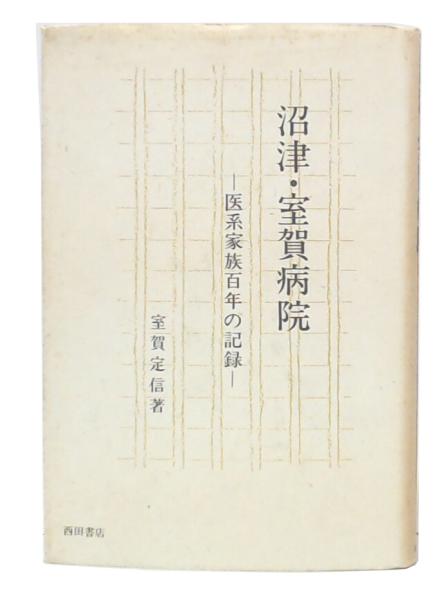 沼津・室賀病院
―医系家族百年の記録―
室賀定信著
西田書店